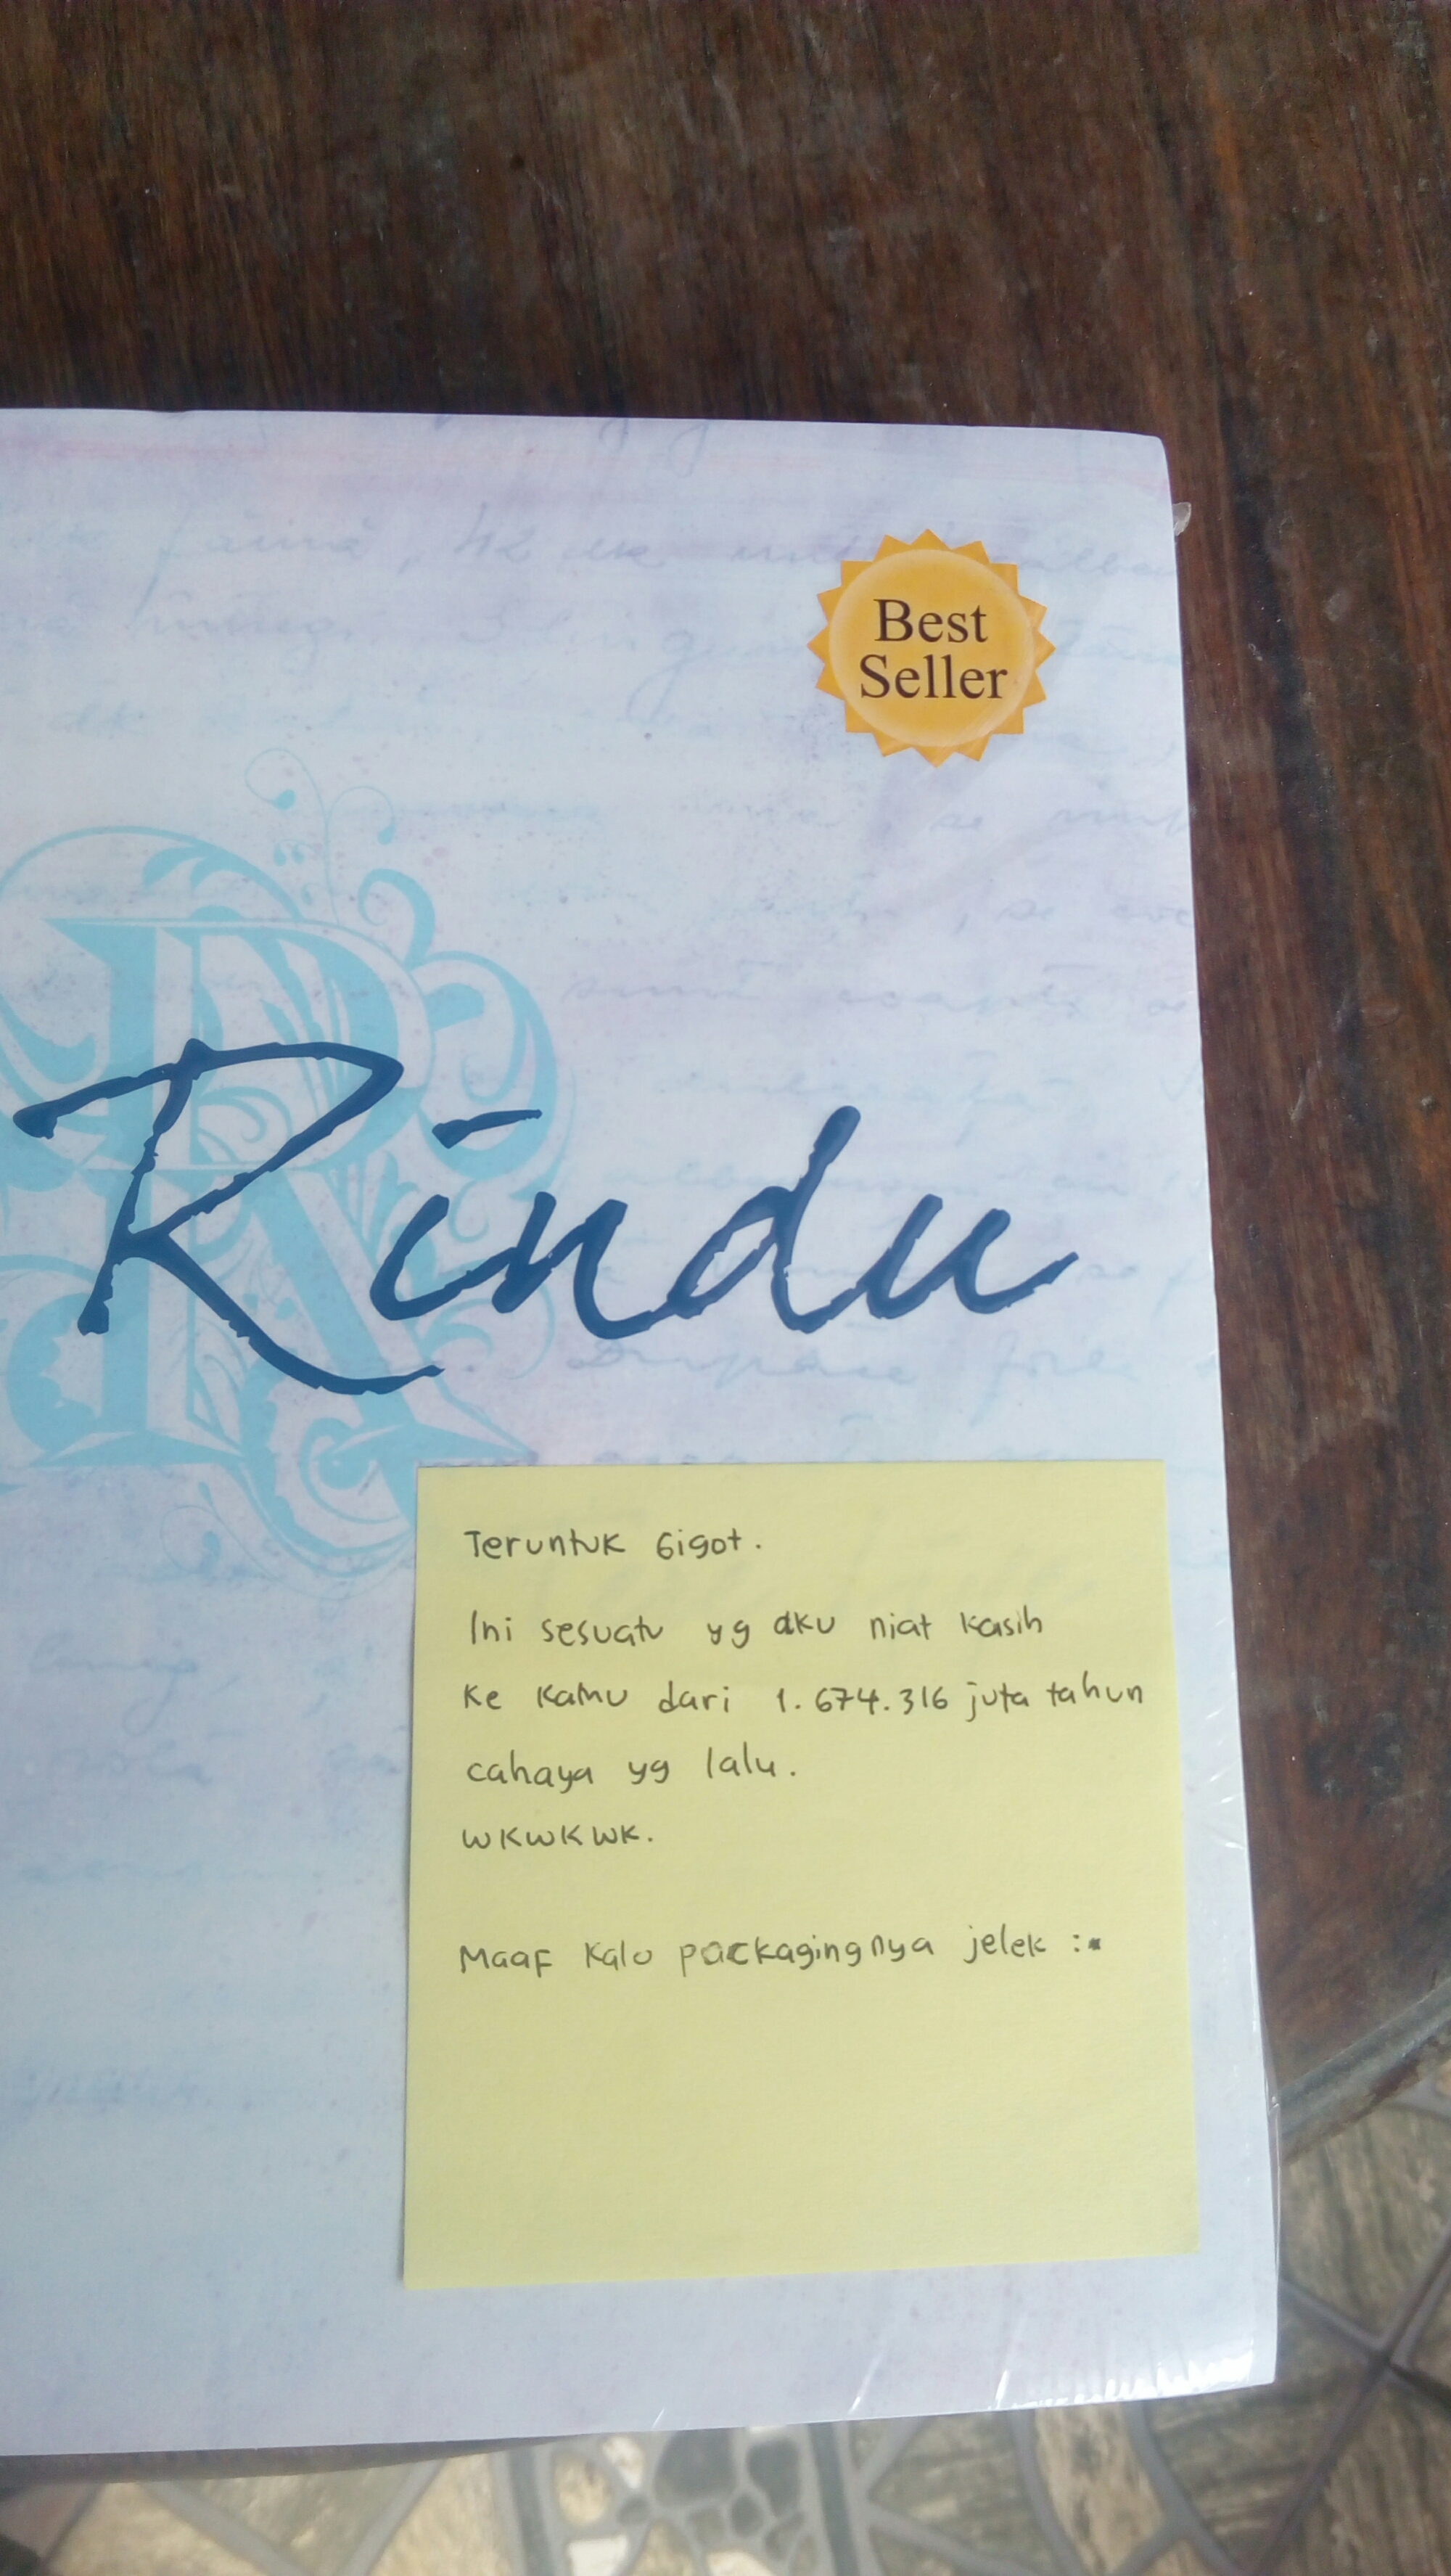 Best
Seller
Rindu
Teruntuk Gigot.
Ini sesuatu yg aku niat kasih
ke kamu dari 1.674.316 juta tahun
cahaya yg lalu.
wkwkwk.
Maaf kalo packagingnya jelek :*